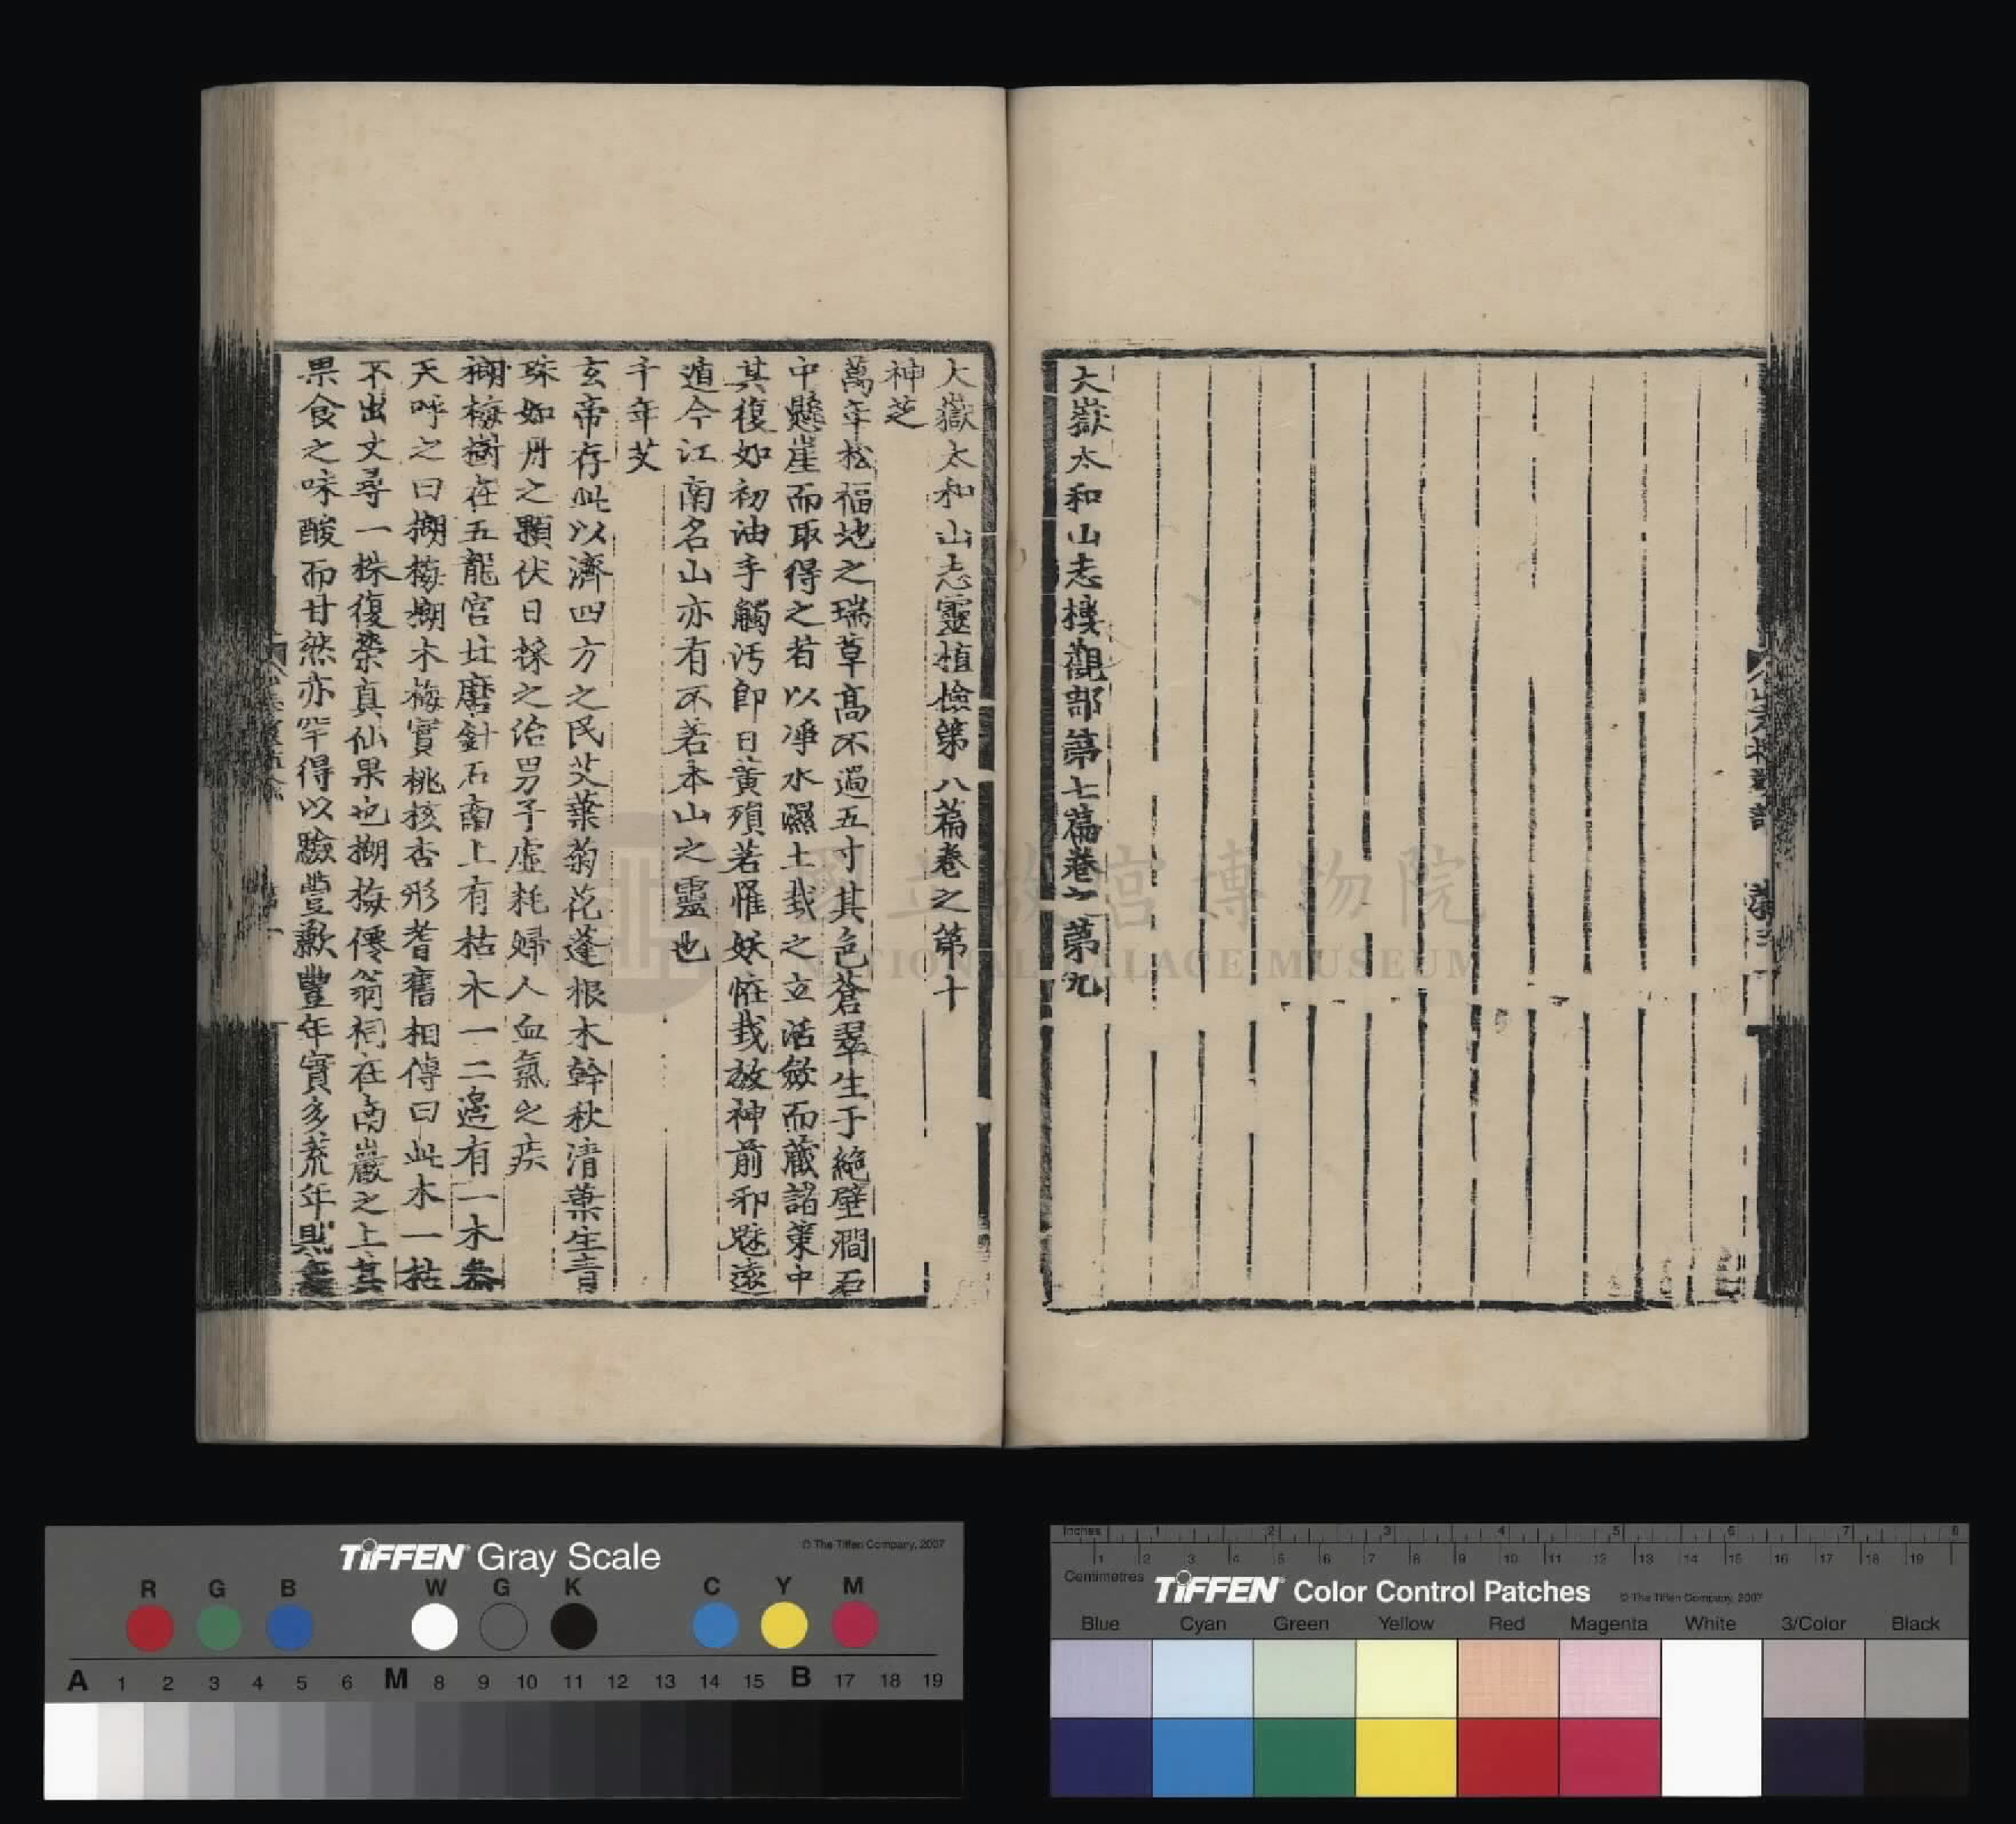 大嶽太和山志樓觀部第七篇卷之第九
大嶽太和山志靈植檢第八篇卷之第十
神芝
萬年松福地之瑞草高不過五寸其色蒼翠生于絶壁澗石
中懸崖而取得之若以凈水濕土栽之立活斂而蔵諸篋中
其復如初油手觸汚即日黃殞若惟妖恠栽放神前邪魅遠
遁今江南名山亦有不若本山之靈也
千年艾
玄帝存此以濟四方之民艾葉菊花蓬根木幹秋清葉生青
珠如丹之顆伏日採之治男子虛耗婦人血氣之疾
榔梅樹在五龍宮北磨針石南上有枯木一二邊有一木叅
天呼之曰榔梅榔木梅實桃核杏形耆舊相傳曰此木一枯
不出丈尋一株復榮真仙果也榔梅僊翁祠在南巖之上其
果食之味酸而甘然亦罕得以驗豐歉豐年實多荒年則
國立故宮博物院
NATIONAL PALACE MUSEUM
TIFFEN Gray Scale
© The Tiffen Company, 2007
R G B W G K C Y M
A 1 2 3 4 5 6 M 8 9 10 11 12 13 14 15 B 17 18 19
Inches 1 2 3 4 5 6 7 8
1 2 3 4 5 6 7 8 9 10 11 12 13 14 15 16 17 18 19
Centimetres
TIFFEN Color Control Patches
© The Tiffen Company, 2007
Blue Cyan Green Yellow Red Magenta White 3/Color Black